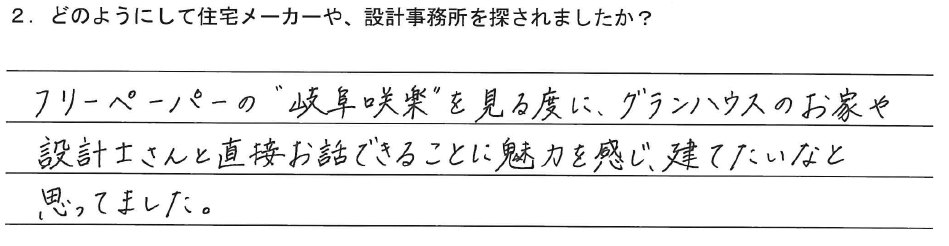 2．どのようにして住宅メーカーや、設計事務所を探されましたか？
フリーペーパーの“岐阜咲楽”を見る度に、グランハウスのお家や
設計士さんと直接お話できることに魅力を感じ、建てたいなと
思ってました。